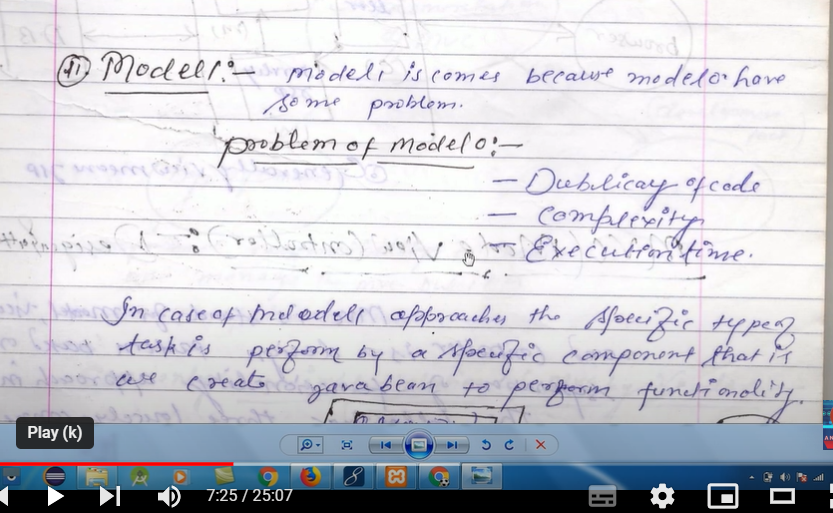 (II) Model1:- Model1 is comes because model0 have
some problem.
problem of model0:-
- Dublicay of code
- Complexity
- Execution time.
In case of Mdodel1 approaches the specific type of
task is perform by a specific component that is
we create java bean to perform functionality.
Play (k)
7:25 / 25:07